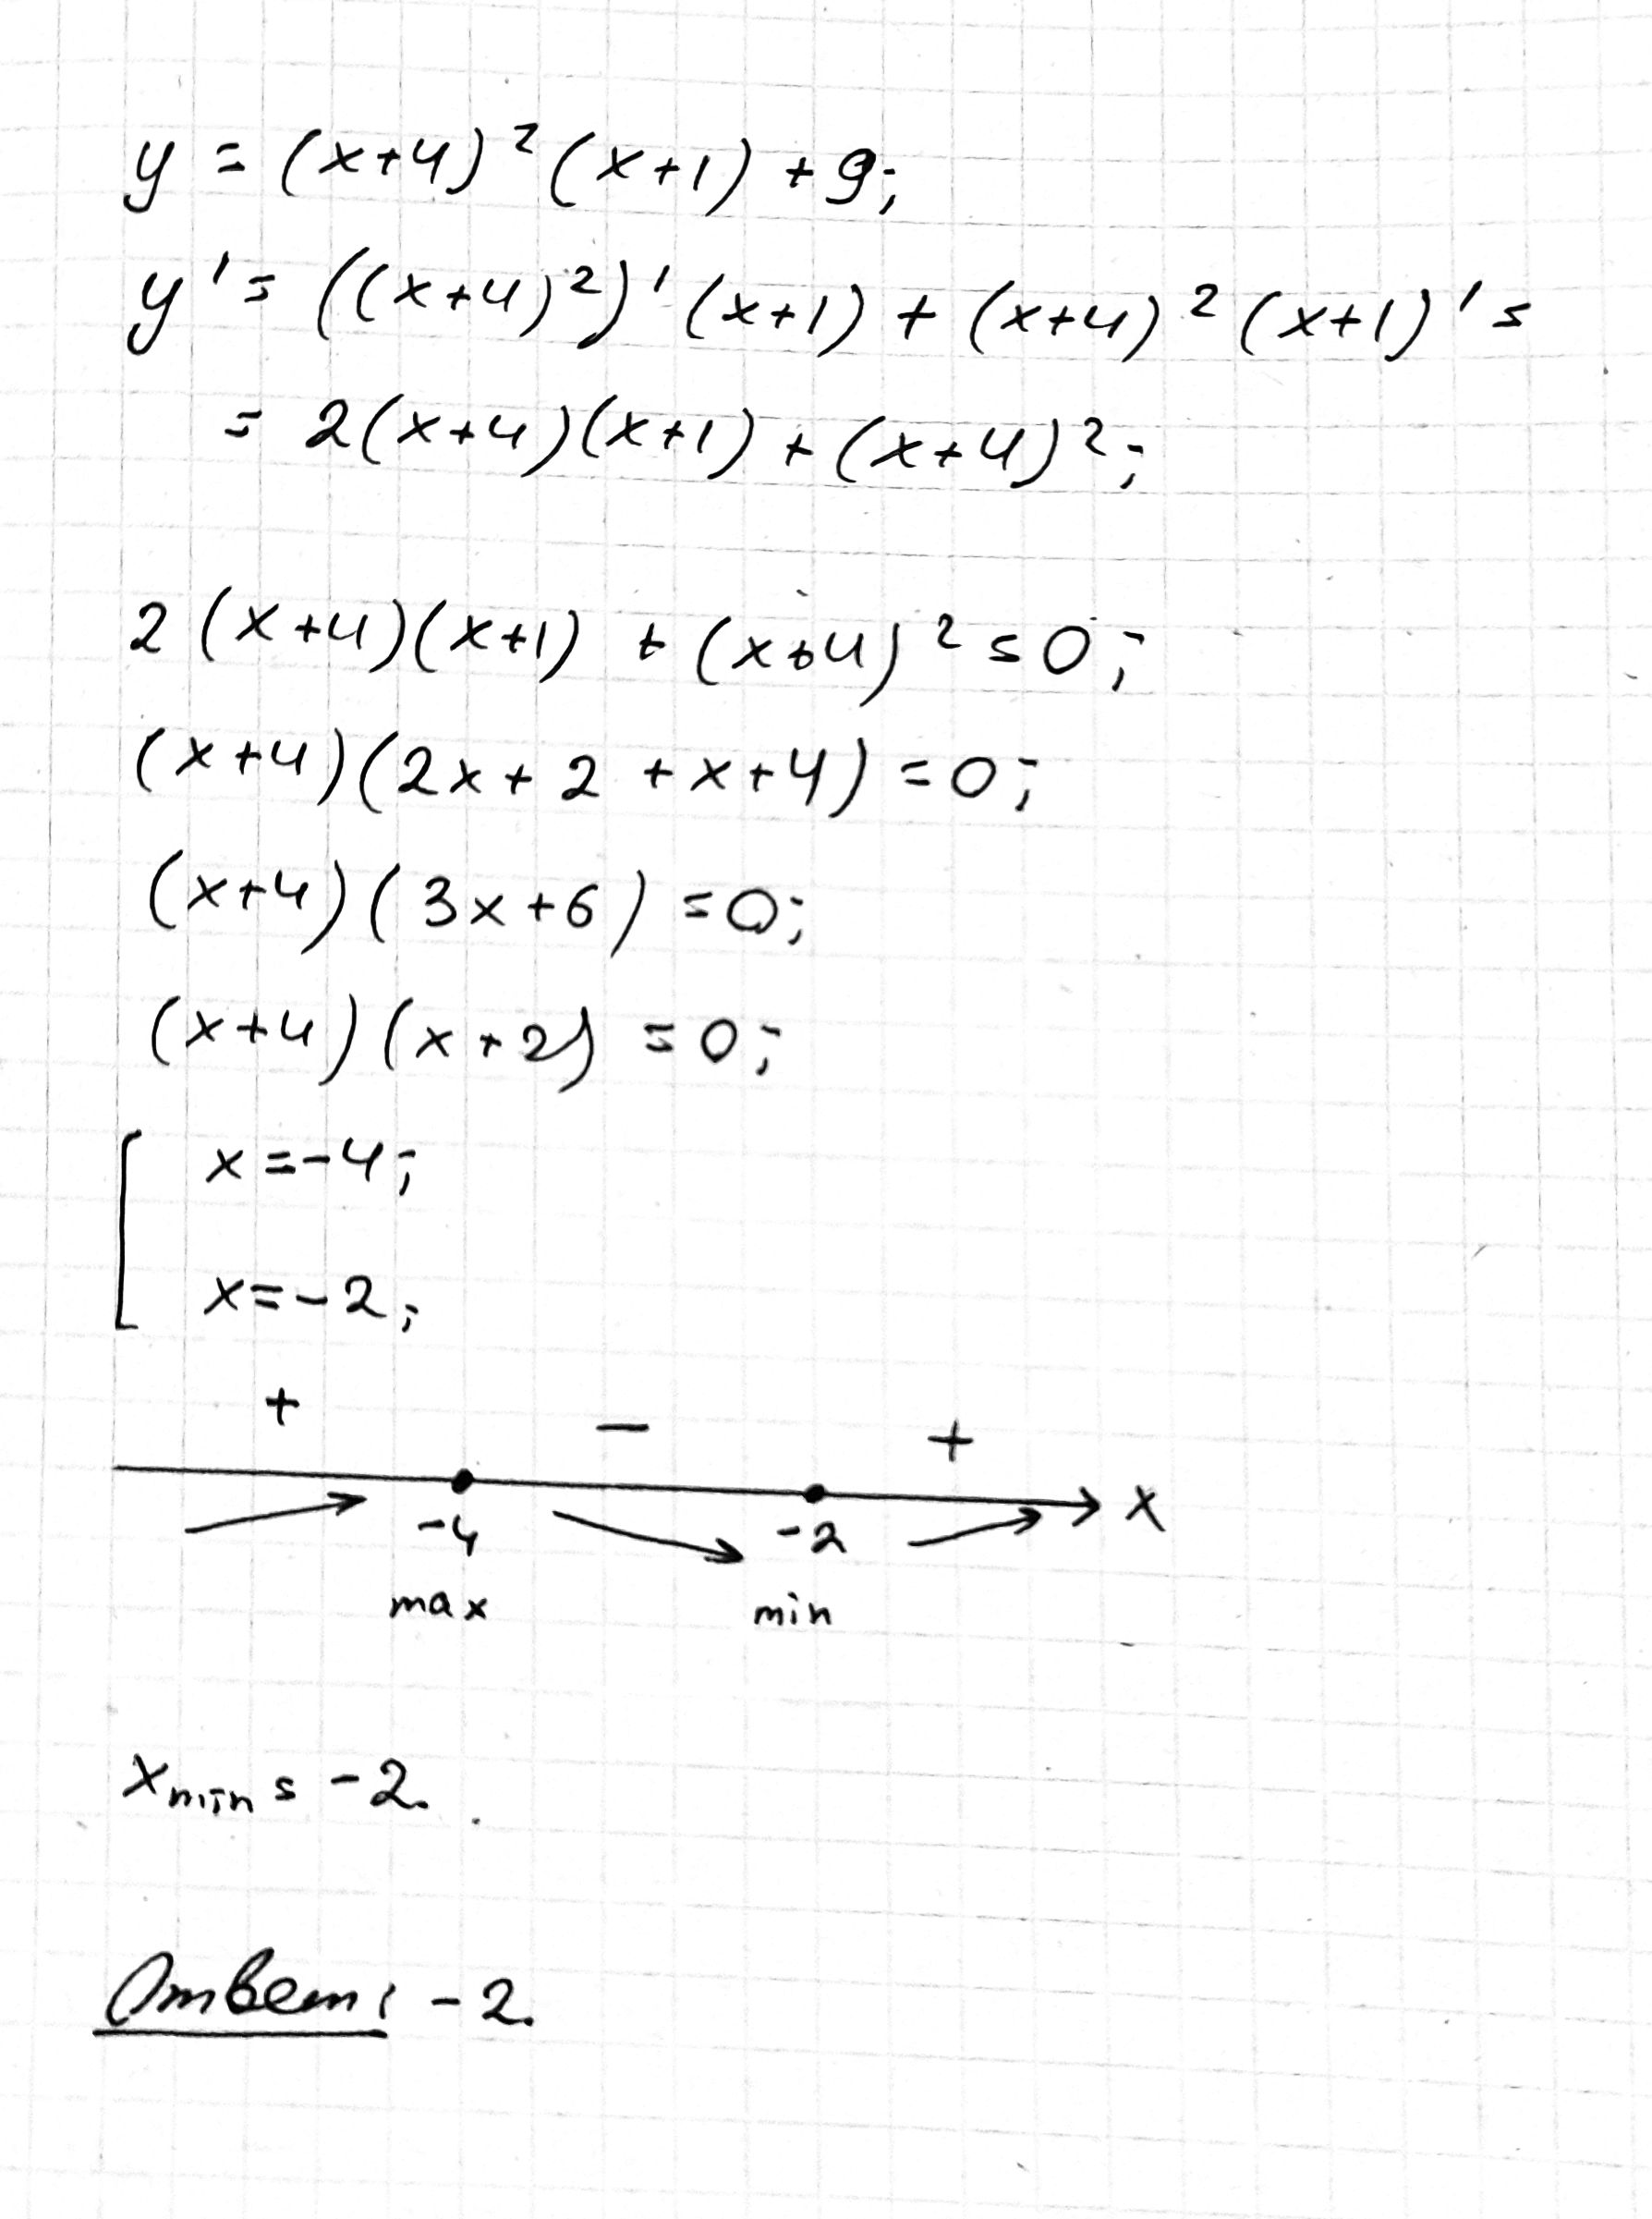 y = (x+4)²(x+1)+9;
y' = ((x+4)²)'(x+1) + (x+4)²(x+1)' =
= 2(x+4)(x+1) + (x+4)²;
2(x+4)(x+1) + (x+4)² = 0;
(x+4)(2x+2+x+4) = 0;
(x+4)(3x+6) = 0;
(x+4)(x+2) = 0;
[ x = -4;
x = -2;
+ − +
-4 -2 x
max min
xmin = -2.
Ответ: -2.